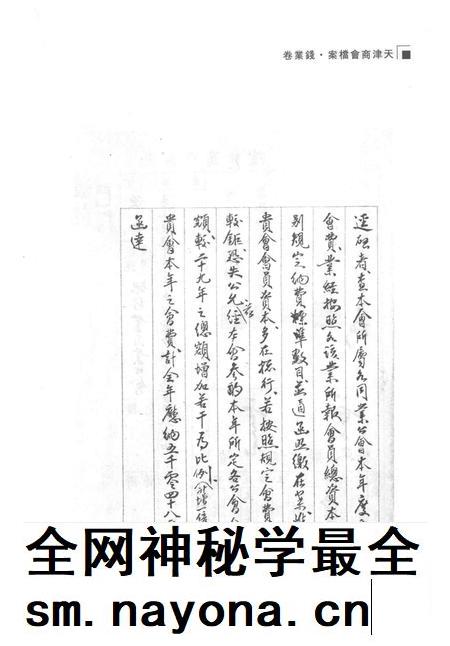 天津商會檔案·錢業卷
逕啟者查本會所屬各同業公會本年度
會費業經按照各該業所報會員總資本
別規定納費標準數目並通函照繳在案
貴會會員資本多在總行若按照規定會費
較鉅恐失公允經本會參酌本年所定各公會
額較二十九年之總額增加若干為比例
貴會本年之會費計全年應納五千零四十八
函達
全网神秘学最全
sm.nayona.cn